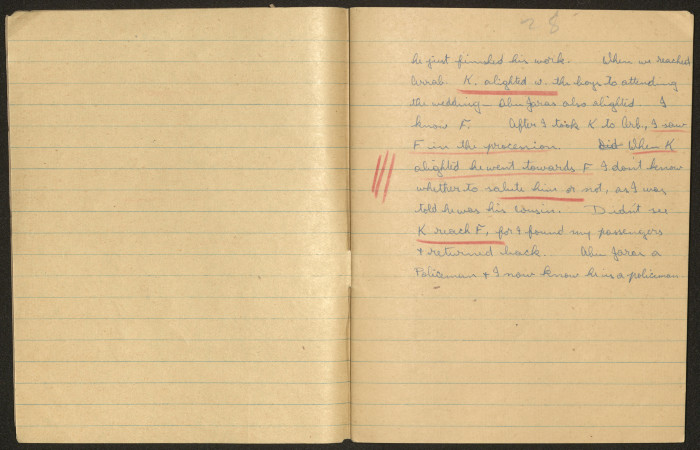 28
he just finished his work. When we reached
Arrab K. alighted w. the boys to attending
the wedding - Abu Jaras also alighted. I
know F. After I took K to Arb, I saw
F in the procession. Did When K
alighted he went towards F I dont know
whether to salute him or not, as I was
told he was his cousin. Didnt see
K reach F, for I found my passengers
& returned back. Abu Jaras a
Policeman & I now know he is a policeman.